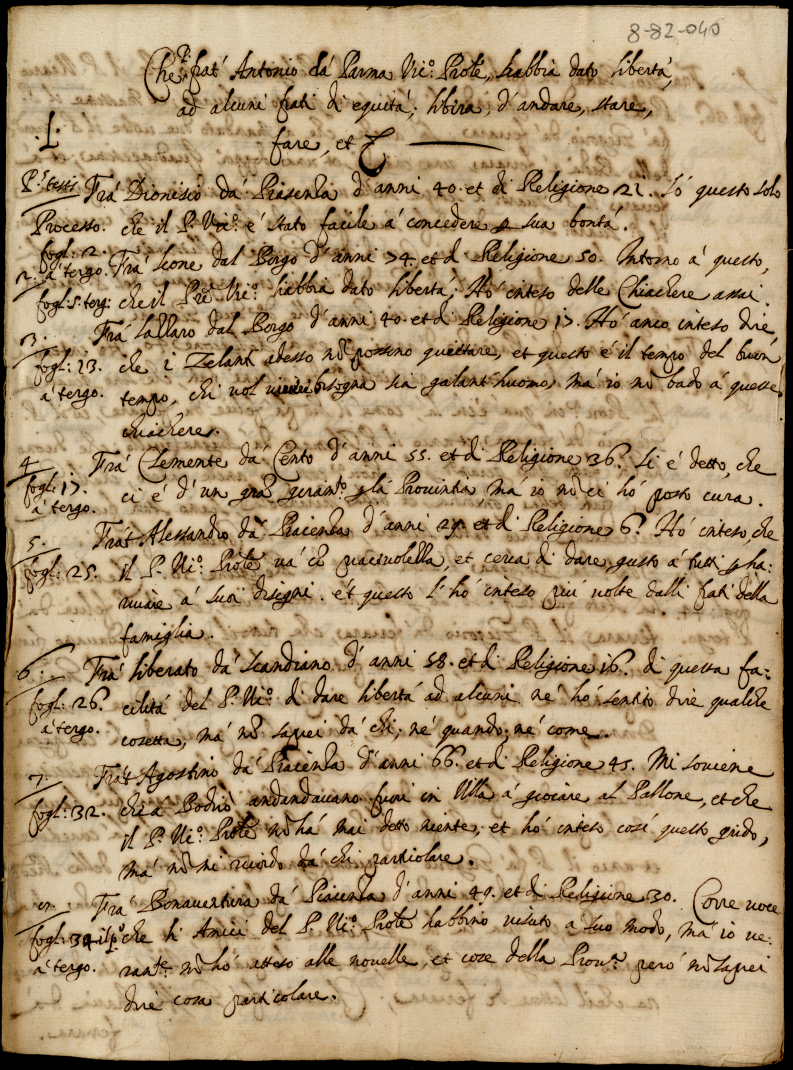 8-82-040
Che frat' Antonio dà Parma Vic.º Prõle, habbia dato libertà,
ad alcuni frati di equità, d'andare, stare,
.I. fare, et
P.º testis Fra' Dionisio dà Piasenza d'anni 40. et di Religione 21. Sò questo solo
Processo. che il P. Vic.º è stato facile à concedere p sua bontà.
fogl: 12.
2. à tergo. Fra' Leone dal Borgo d'anni 74. et di Religione 50. Intorno à questo,
fogl: 5. terg: che il Prẽ Vic.º habbia dato libertà, Hò inteso delle Chiachere assai.
3. Fra' Lazzaro dal Borgo d'anni 40. et di Religione 17. Hò anco inteso dire
fogl: 13. che i Zelanti adesso nõ possino quietare, et questo è il tempo del buon
à tergo. tempo, chi vol bisogna sia galant'huomo, mà io nõ bado à queste
chiachere.
4. Fra' Clemente dà Cento d'anni 55. et di Religione 36. Si è detto, che
fogl: 17. ci è d'un grã p la Provintia, mà io nõ ci hò posto cura.
à tergo.
5. Frat' Alessandro dà Piacenza d'anni 27. et di Religione 6. Hò inteso, che
fogl: 25. il P. Vic.º Prõle và cõ piacevolezza, et cerca di dare gusto à tutti p ha:
à suoi disegni. et questo l'hò inteso più volte dalli frati della
famiglia.
6. Fra' Liberato dà Scandiano d'anni 58. et di Religione 16. di questa fa:
fogl: 26. cilità del P. Vic.º di dare libertà ad alcuni ne hò sentito dire qualche
à tergo. cosetta, mà nõ saprei dà chi, nè quando, nè come.
7. Frat' Agostino dà Piacenza d'anni 66. et di Religione 45. Mi soviene
fogl: 32. che à andandavano fuori in Villa à giocare al Pallone, et che
il P. Vic.º Prõle nõ hà mai detto niente, et hò inteso così questo grido,
mà nõ mi ricordo dà chi particolare.
Fra' Bonaventura dà Piacenza d'anni 49. et di Religione 30. Corre voce
fogl: 34 che li Amici del P. Vic.º Prõle habbino vissuto a suo modo, mà io ve:
à tergo. ram.te nõ hò atteso alle novelle, et cose della Prov.ª però nõ saprei
dire cosa particolare.